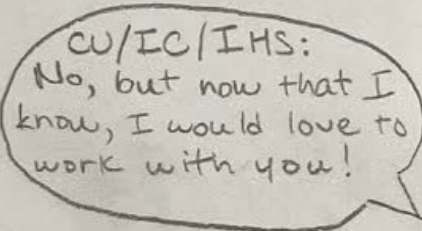 CU/IC/IHS:
No, but now that I
know, I would love to
work with you!